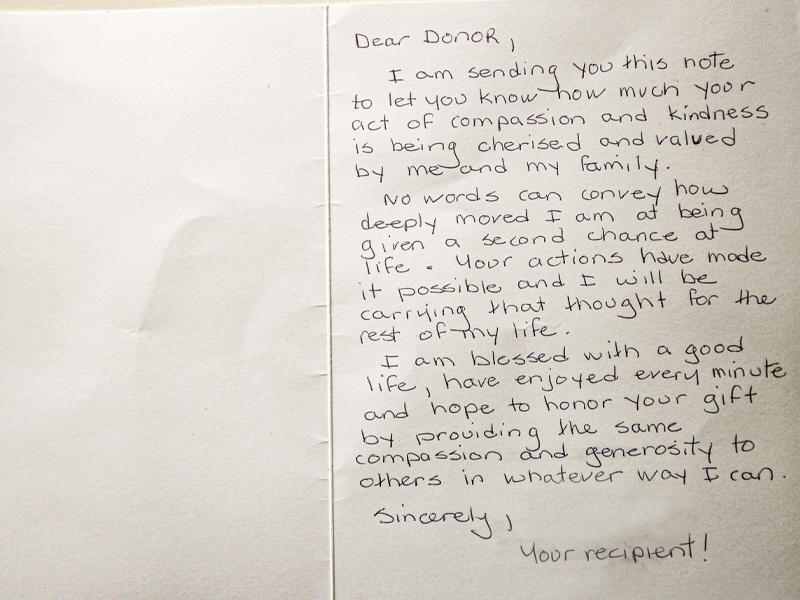 Dear Donor,
I am sending you this note
to let you know how much your
act of compassion and kindness
is being cherised and valued
by me and my family.
No words can convey how
deeply moved I am at being
given a second chance at
life. Your actions have made
it possible and I will be
carrying that thought for the
rest of my life.
I am blessed with a good
life, have enjoyed every minute
and hope to honor your gift
by providing the same
compassion and generosity to
others in whatever way I can.
Sincerely,
Your recipient!